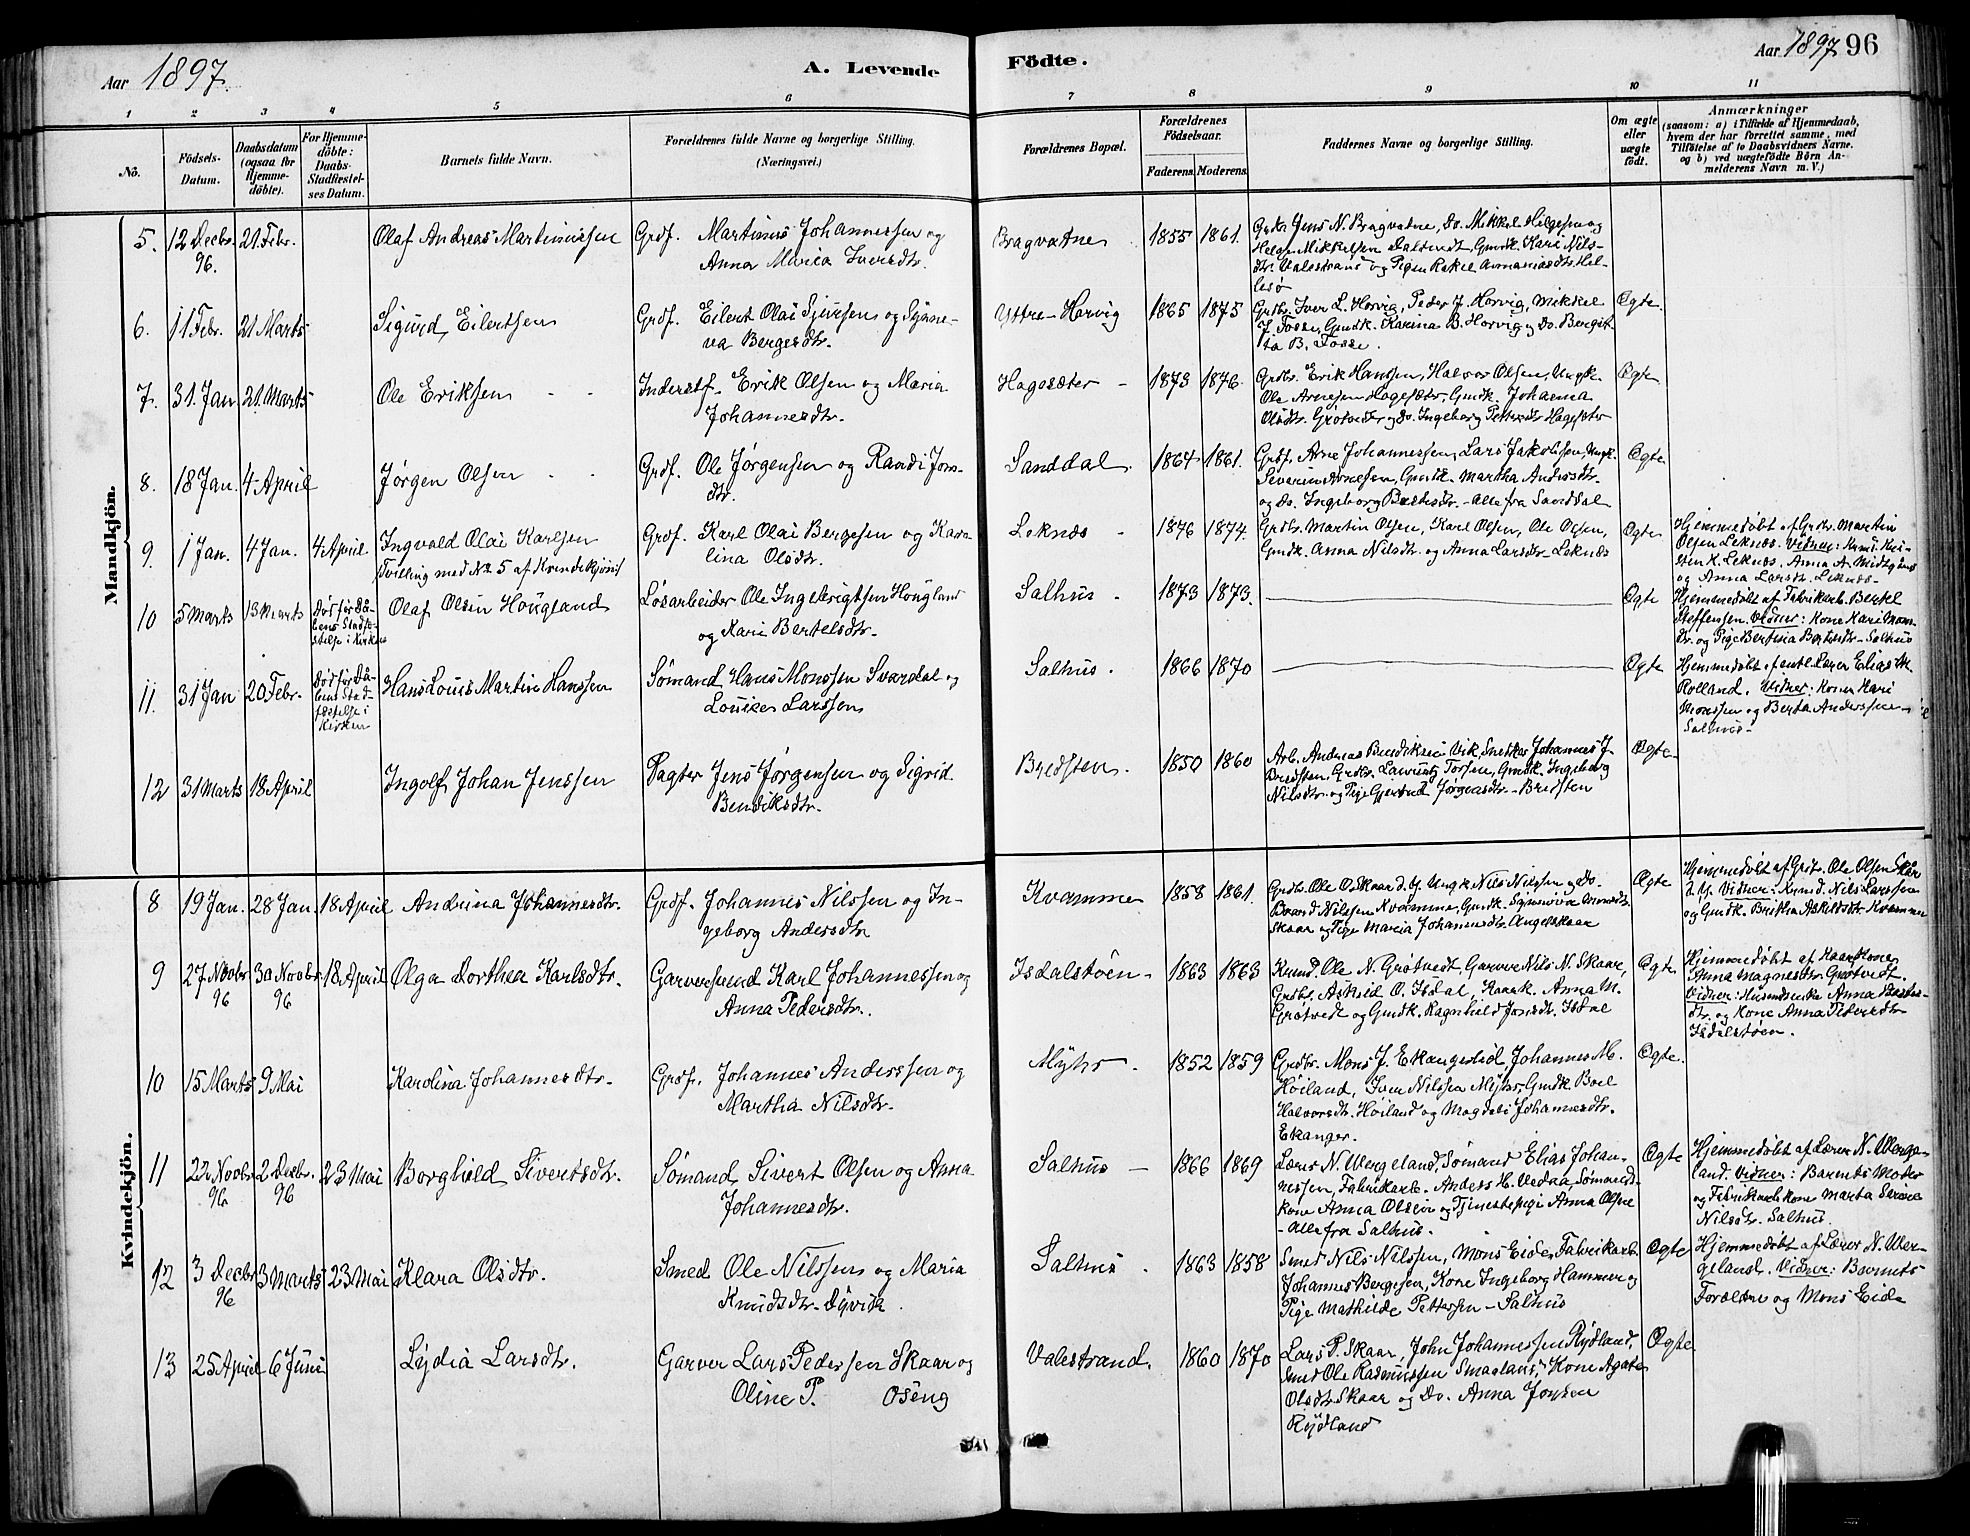 Aar 1897.
A. Levende
Födte.
Aar 1897
96
1 2 3 4 5 6 7 8 9 10 11
No.
Födsels-
Datum.
Daabsdatum
(ogsaa for
Hjemme-
døbte).
For Hjemme-
döbte:
Daabs-
Stadfæstel-
ses Datum.
Barnets fulde Navn.
Forældrenes fulde Navne og borgerlige Stilling.
(Næringsvei.)
Forældrenes Bopæl.
Forældrenes
Födselsaar.
Faderens. Moderens.
Faddernes Navne og borgerlige Stilling.
Om ægte
eller
uægte
födt.
Anmærkninger
(saasom: a) i Tilfælde af Hjemmedaab,
hvem der har forrettet samme, med
Tilföielse af to Daabsvidners Navne.
og b) ved uægtefödte Börn An-
melderens Navn m. V.)
Mandkjön.
5. 12 Decbr. 96. 21 Febr. Olaf Andreas Martinussen Grdf. Martinus Johannessen og
Anna Maria Iversdtr.
Bragvatne 1855 1861. Jens N. Bragvatne, Do. Mikkel Helgesen og
Helge Mikkelsen Gmdk. Kari Nils-
dtr. Valestrand og Pigen Rakel
6. 11 Febr. 21 Marts Sigurd Eilertsen Grdf. Eilert Olai Sjursen og Synne-
va Bergesdtr.
Yttre-Horvig 1865 1875 Grdbr. Iver L. Horvig, Peder J. Horvig, Mikkel
J. Fosse, Gmdk. Karina B. Horvig og Do. Bergit-
ta B. Fosse.
Ægte.
7. 31. Jan 21. Marts Ole Eriksen Inderstf. Erik Olsen og Maria
Johannesdtr.
Hagesæter 1873 1876. Grdbr. Erik Hanssen, Halvor Olsen, Ungk.
Ole Arnesen Hagesætr. Gmdk. Johanna
Olsdtr. Grötvedt og Do. Ingeborg Pettersdtr Hagesæter
Ægte.
8. 18 Jan. 4 April Jørgen Olsen Grdf. Ole Jørgensen og Randi Jons-
dtr.
Sanddal. 1864 1861. Grdf. Arne Johannessen, Lars Jakobsen, Ungk.
Severin Arnesen, Gmdk. Martha Andersdtr
og Do. Ingeborg - Alle fra Sanddal
Ægte
9. 1 Jan. 4 Jan. 4 April Ingvald Olai Karlsen
Tvilling med No. 5 af Kvindekjøn
Grdf. Karl Olai Bergesen og Karo-
lina Olsdtr.
Leknæs 1876 1874. Grdbr. Martin Olsen, Karl Olsen, Ole Olsen,
Gmdk. Anna Nilsdtr. og Anna Larsdtr. Leknæs
Ægte Hjemmedøbt af Grdr. Martin
Olsen Leknæs. Vidner: Kri-
sten K. Leknæs, Anna A.
og Anna Larsdtr. Leknæs
10 5 Marts 13 Marts Død før Då-
bens Stadfæ-
stelse i Kirken
Olaf Olsen Hougland Løsarbeider Ole Ingebrigtsen Hougland
og Kari Bertelsdtr.
Salhus 1873 1873. Ægte Hjemmedøbt af Fabrikarb. Bertel
Steffensen. Vidner: Kone Kari Mons-
dtr. og Pige Bertina Bertelsdtr. Salhus
11. 31 Jan 20 Febr. Død før Då-
bens Stad-
fæstelse i
Kirken
Hans Louis Martin Hanssen Sømand Hans Monssen Svardal og
Louise Larssen
Salhus. 1866 1870 Ægte Hjemmedøbt af Lærer Elias M.
Rolland. Vidner: Kone Kari
Monssen og Berta Anderssen
Salhus
12 31 Marts 18 April Ingolf Johan Jenssen Pagter Jens Jørgensen og Sigrid
Bendiksdtr.
Bredsten. 1850 1860 Arb. Andreas Bendiksen Vik, Snedker Johannes J.
Bredsten, Grdbr. Lauritz Torsen, Gmdk. Ingeborg
Nilsdtr. og Pige Gjertrud Jørgensdtr. Bredsten
Ægte
Kvindekjön.
8 19 Jan. 28 Jan. 18 April Andrina Johannesdtr. Grdf. Johannes Nilssen og In-
geborg Andersdtr
Kvamme 1858 1861. Grdbr. Ole O. Skaar d.y. Ungk. Nils Nilssen og Do.
Nilssen Kvamme, Gmdk. Synneva
Skaar og Pige Maria Johannesdtr. Angelskaar
Ægte Hjemmedøbt af Grdr. Ole Olsen Skår
d.y. Vidner: Nils Larssen
og Gmdk. Britha Askildsdtr. Kvamme
9 27 Novbr 96 30 Novbr 96 18 April Olga Dorthea Karlsdtr. Garversvend Karl Johannessen og
Anna Pedersdtr.
Isdalstøen 1863 1863 Ole N. Grøtvedt, Garver Nils N. Skaar,
Grdbr. Askild O. Isdal, Kaark. Anna M.
Grøtvedt og Gmdk. Ragnhild Jonsdtr. Isdal
Ægte Hjemmedøbt af Kaarkone
Anna Magnesdtr. Grøtvedt.
Vidner: Anna
dtr. og Kone Anna Pedersdtr
Isdalstøen.
10 15 Marts 9 Mai Karolina Johannesdtr. Grdf. Johannes Anderssen og
Martha Nilsdtr.
Myhr 1852 1859 Grdbr. Mons J. Ekangerlid, Johannes M.
Høiland, Sven Nilssen Myhr, Gmdk Boel
Halvorsdtr. Høiland og Magdeli Johannesdtr.
Ekanger.
Ægte.
11 22 Novbr 96 2 Decbr. 96 23 Mai Borghild Sivertsdtr. Sømand Sivert Olsen og Anna
Johannesdtr.
Salhus 1866 1869 Lærer N. Wergeland, Sømand Elias Johan-
nessen, Fabrikarb. Anders H. Vedaa, Sømands-
kone Anna Olsen og Tjenestepige Anna Olsen
- Alle fra Salhus.
Ægte Hjemmedøbt af Lærer N. Werge-
land. Vidner: Barnets Moder
og Fabrikarb.kone Marta
Nilsdtr. Salhus.
12 3 Decbr 96 3 Marts 23 Mai Klara Olsdtr. Smed Ole Nilssen og Maria
Knudsdtr. Dyvik.
Salhus 1863 1858 Smed Nils Nilssen, Mons Eide, Fabrikarb.
Johannes Bergesen, Kone Ingeborg Hammer og
Pige Mathilde Pettersen - Salhus
Ægte Hjemmedøbt af Lærer N. Wer-
geland. Vidner: Barnets
Forældre og Mons Eide
13 25 April 6 Juni Lydia Larsdtr. Garver Lars Pedersen Skaar og
Oline P. Oseng
Valestrand. 1860 1870 Lars P. Skaar, John Johannessen Rydland,
Smed Ole Rasmussen Smaaland, Kone Agate
Olsdtr. Skaar og Do. Anna Jonsen
Rydland
Ægte